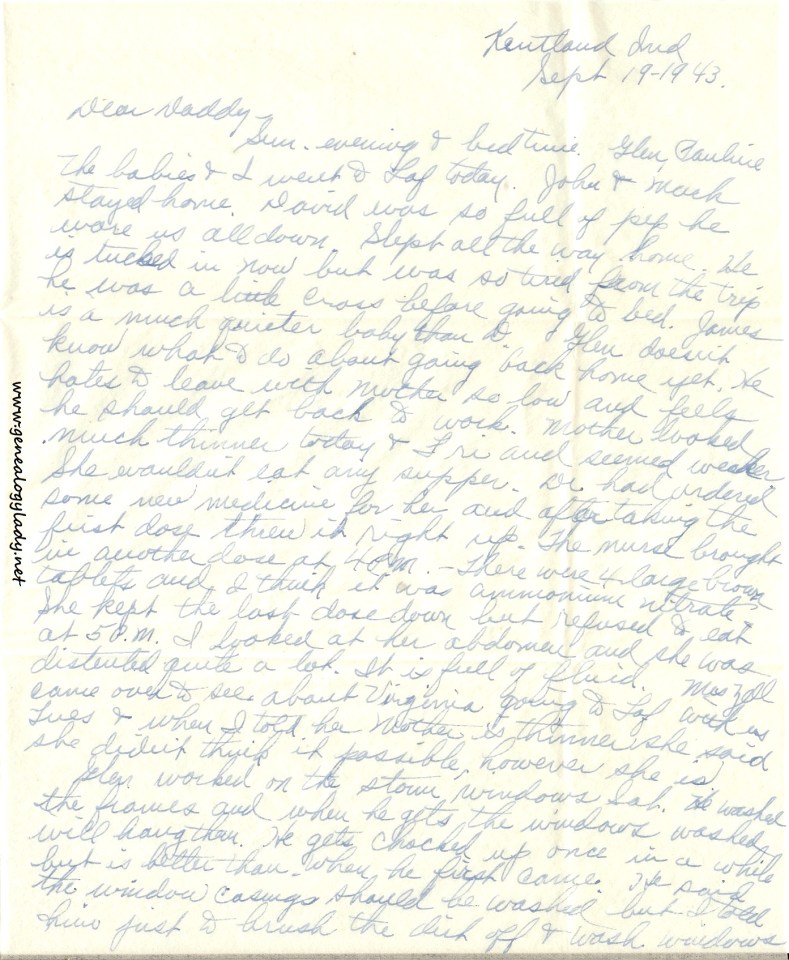 Kentland Ind
Sept 19-1943.
Dear Daddy,
Sun. evening & bedtime. Glen, Pauline
the babies & I went to Laf today. John & Mack
stayed home. David was so full of pep he
wore us all down. Slept all the way home. He
is tucked in now but was so tired from the trip
he was a little cross before going to bed. James
is a much quieter baby than D. Glen doesn't
know what to do about going back home yet. He
hates to leave with Mother so low and feels
he should get back to work. Mother looked
much thinner today & Fri and seemed weaker
She wouldn't eat any supper. Dr had ordered
some new medicine for her and after taking the
first dose threw it right up. The nurse brought
in another dose at 4 P.M. - There were 4 large brown
tablets and I think it was ammonium nitrate
She kept the last dose down but refused to eat
at 5 P.M. I looked at her abdomen and she was
distented quite a lot. It is full of fluid. Mrs Zell
came over to see about Virginia going to Laf with us
Tues & when I told her Mother is thinner she said
she didn't think it possible, however she is
Glen worked on the storm windows Sat. He washed
the frames and when he gets the windows washed
will hang them. He gets chocked up once in a while
but is better than when he first came. He said
the window casings should be washed but I told
him just to brush the dirt off & wash windows
www.genealogylady.net